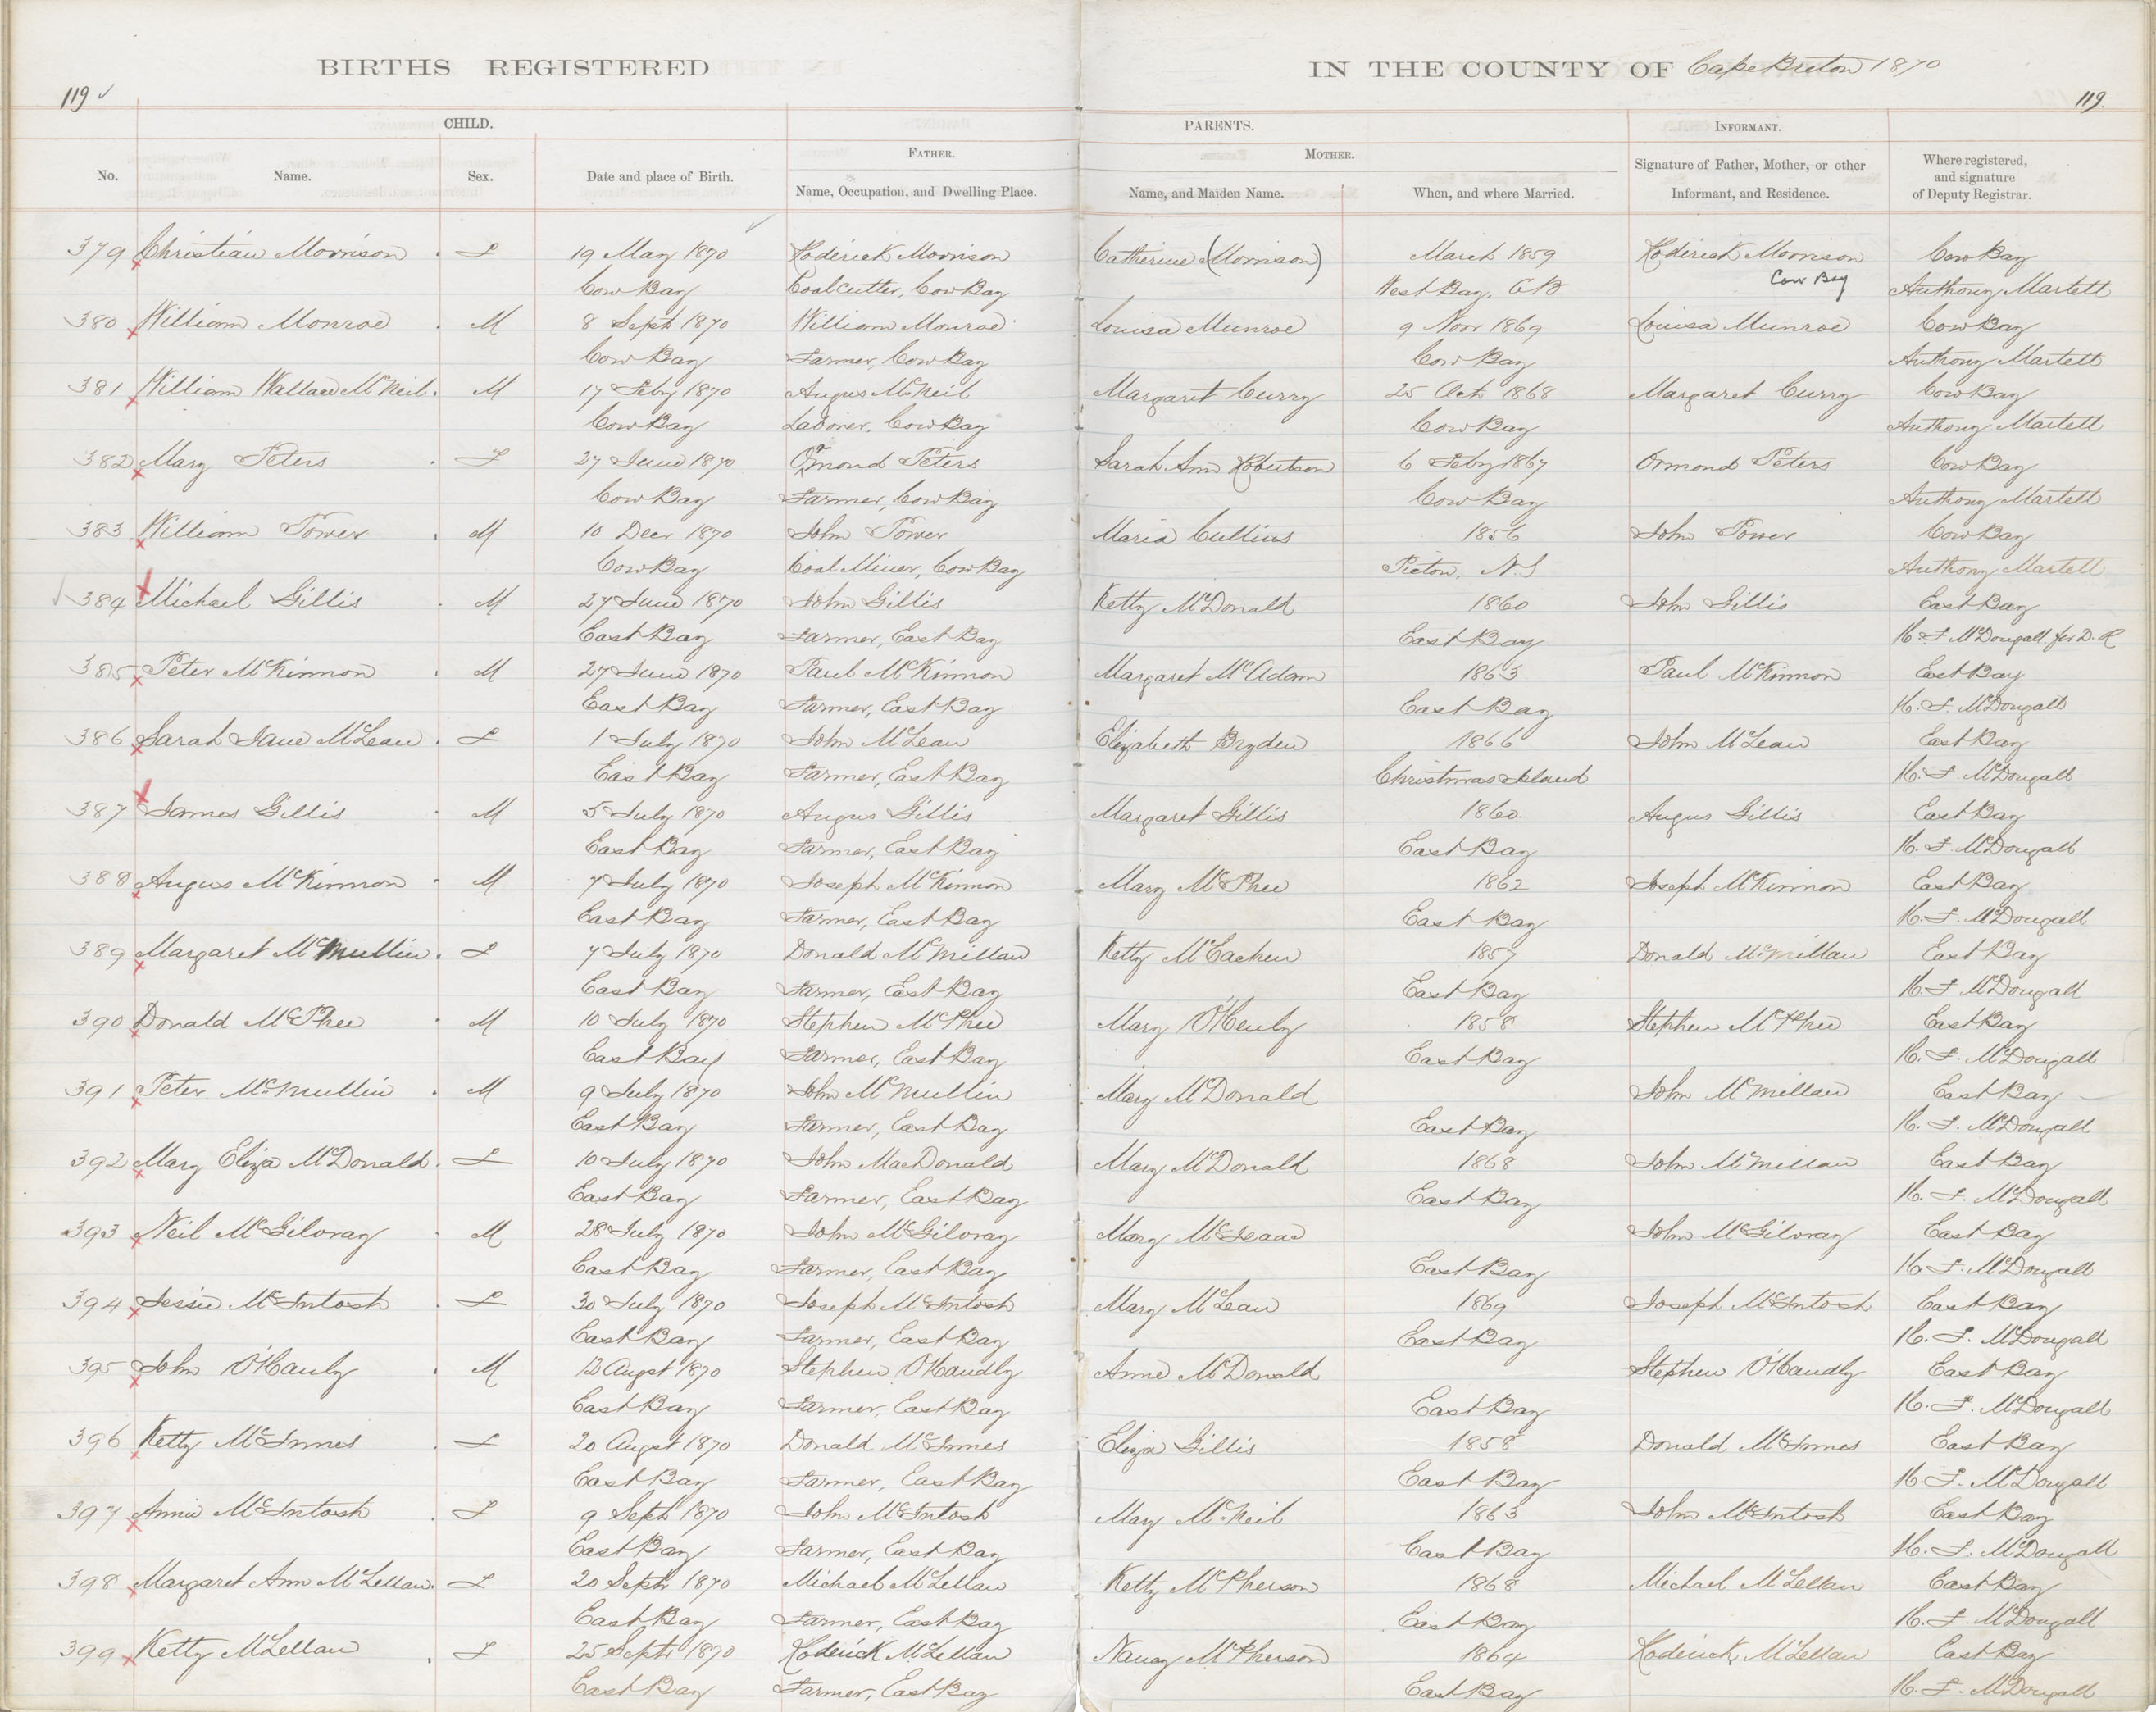 BIRTHS REGISTERED IN THE COUNTY OF Cape Breton 1870
119 119.
CHILD. PARENTS. INFORMANT.
FATHER. MOTHER.
No. Name. Sex. Date and place of Birth. Name, Occupation, and Dwelling Place. Name, and Maiden Name. When, and where Married. Signature of Father, Mother, or other Informant, and Residence. Where registered, and signature of Deputy Registrar.
379 Christian Morrison F 19 May 1870 Roderick Morrison Catherine (Morrison) March 1859 Roderick Morrison Cow Bay
Cow Bay Coal Cutter, Cow Bay West Bay, CB Cow Bay Anthony Martell
380 William Monroe M 8 Sept 1870 William Monroe Louisa Munroe 9 Novr 1869 Louisa Munroe Cow Bay
Cow Bay Farmer, Cow Bay Cow Bay Anthony Martell
381 William Wallace McNeil M 17 Feby 1870 Angus McNeil Margaret Curry 25 Oct 1868 Margaret Curry Cow Bay
Cow Bay Laborer, Cow Bay Cow Bay Anthony Martell
382 Mary Peters F 27 June 1870 Ormond Peters Sarah Ann Robertson 6 Feby 1867 Ormond Peters Cow Bay
Cow Bay Farmer, Cow Bay Cow Bay Anthony Martell
383 William Power M 10 Decr 1870 John Power Maria Cullins 1856 John Power Cow Bay
Cow Bay Coal Miner, Cow Bay Picton, N.S Anthony Martell
384 Michael Gillis M 27 June 1870 John Gillis Ketty McDonald 1860 John Gillis East Bay
East Bay Farmer, East Bay East Bay H. F. McDougall for D. R
385 Peter McKinnon M 27 June 1870 Paul McKinnon Margaret McAdam 1863 Paul McKinnon East Bay
East Bay Farmer, East Bay East Bay H. F. McDougall
386 Sarah Jane McLean F 1 July 1870 John McLean Elizabeth Bryden 1866 John McLean East Bay
East Bay Farmer, East Bay Christmas Island H. F. McDougall
387 James Gillis M 5 July 1870 Angus Gillis Margaret Gillis 1860 Angus Gillis East Bay
East Bay Farmer, East Bay East Bay H. F. McDougall
388 Angus McKinnon M 7 July 1870 Joseph McKinnon Mary McPhee 1862 Joseph McKinnon East Bay
East Bay Farmer, East Bay East Bay H. F. McDougall
389 Margaret McMullin F 7 July 1870 Donald McMillan Ketty McEachen 1857 Donald McMillan East Bay
East Bay Farmer, East Bay East Bay H. F McDougall
390 Donald McPhee M 10 July 1870 Stephen McPhee Mary O'Henly 1858 Stephen McPhee East Bay
East Bay Farmer, East Bay East Bay H. F. McDougall
391 Peter McMullin M 9 July 1870 John McMullin Mary McDonald John McMillan East Bay
East Bay Farmer, East Bay East Bay H. F. McDougall
392 Mary Eliza McDonald F 10 July 1870 John MacDonald Mary McDonald 1868 John McMillan East Bay
East Bay Farmer, East Bay East Bay H. F. McDougall
393 Neil McGilvray M 28 July 1870 John McGilvray Mary McIsaac John McGilvray East Bay
East Bay Farmer, East Bay East Bay H. F. McDougall
394 Jessie McIntosh F 30 July 1870 Joseph McIntosh Mary McLean 1869 Joseph McIntosh East Bay
East Bay Farmer, East Bay East Bay H. F. McDougall
395 John O'Hanly M Augst 1870 Stephen O'Handly Anne McDonald Stephen O'Handly East Bay
East Bay Farmer, East Bay East Bay H. F. McDougall
396 Ketty McInnes F 20 Augst 1870 Donald McInnes Eliza Gillis 1858 Donald McInnes East Bay
East Bay Farmer, East Bay East Bay H. F. McDougall
397 Annie McIntosh F 9 Sept 1870 John McIntosh Mary McNeil 1863 John McIntosh East Bay
East Bay Farmer, East Bay East Bay H. F. McDougall
398 Margaret Ann McLellan F 20 Septr 1870 Michael McLellan Ketty McPherson 1868 Michael McLellan East Bay
East Bay Farmer, East Bay East Bay H. F. McDougall
399 Ketty McLellan F 25 Septr 1870 Roderick McLellan Nancy McPherson 1864 Roderick McLellan East Bay
East Bay Farmer, East Bay East Bay H. F. McDougall